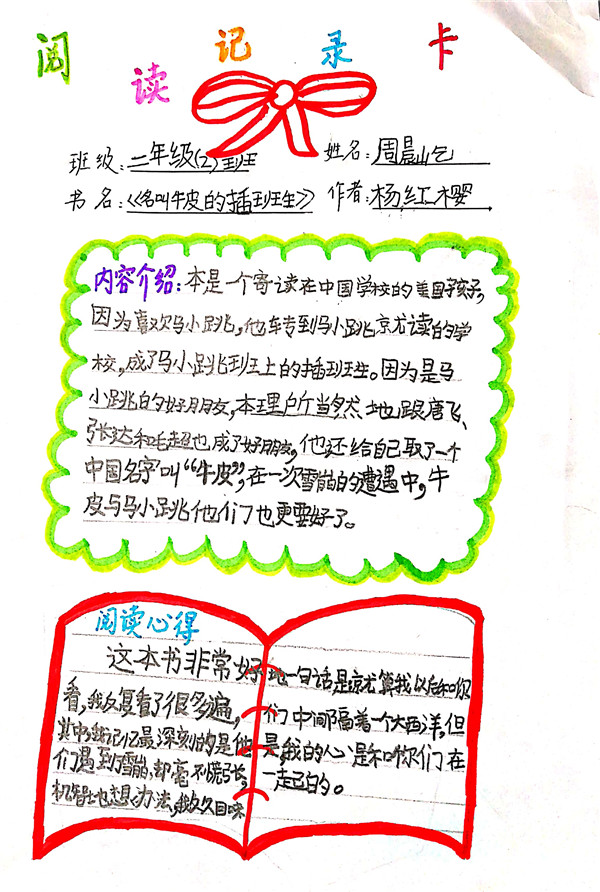 阅读记录卡
班级：二年级(2)班 姓名：周晨屹
书名：《名叫牛皮的插班生》 作者：杨红樱
内容介绍：本是一个寄读在中国学校的美国孩子，
因为喜欢马小跳，他转到马小跳就读的学
校，成了马小跳班上的插班生。因为是马
小跳的好朋友，本理所当然地跟唐飞、
张达和毛超也成了好朋友，他还给自己取了一个
中国名字叫“牛皮”，在一次雪崩的遭遇中，牛
皮与马小跳他们也更要好了。
阅读心得
这本书非常好
看，我反复看了很多遍，
其中我记忆最深刻的是他
们遇到雪崩，却毫不慌张，
机智地想办法，我久久回味
地一句话是就算我以后和你
们中间隔着一个大西洋，但
是，我的心是和你们在
一起的。